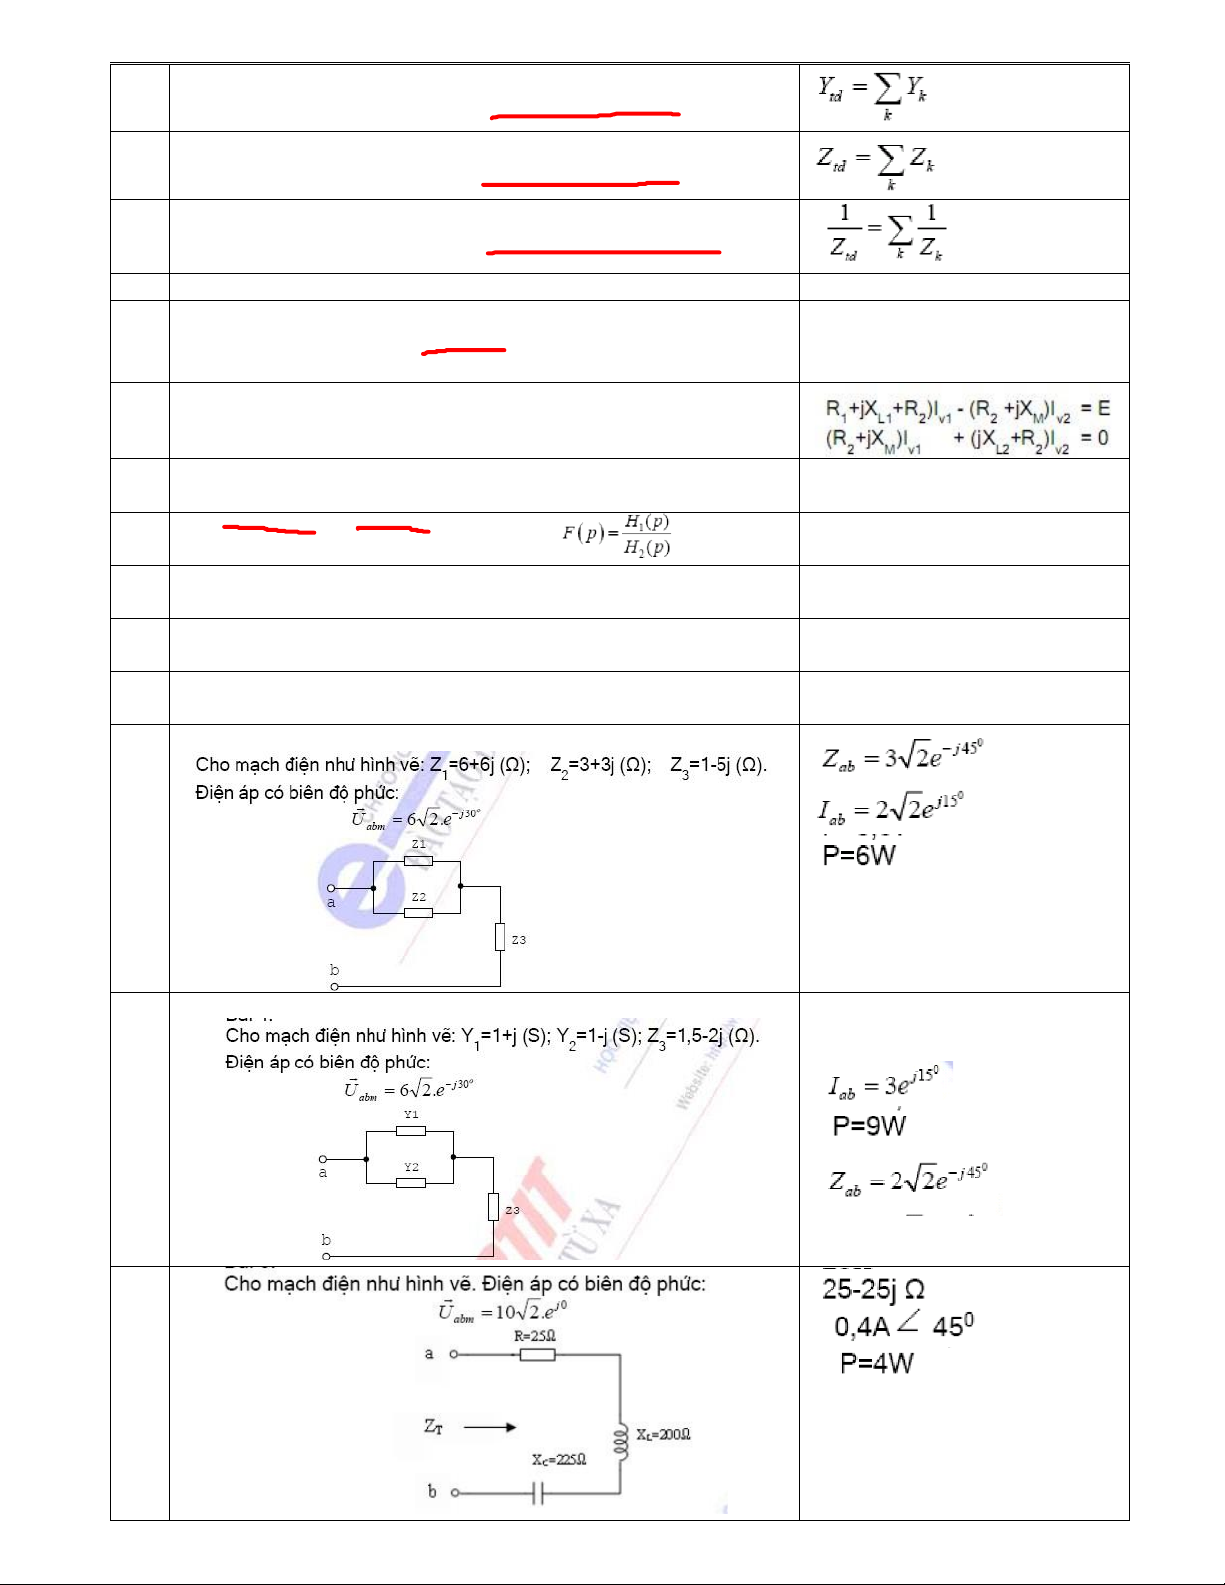 Y_td = ∑_k Y_k
Z_td = ∑_k Z_k
1/Z_td = ∑_k 1/Z_k
R₁+jX_L1+R₂)I_v1 - (R₂ +jX_M)I_v2 = E
(R₂+jX_M)I_v1 + (jX_L2+R₂)I_v2 = 0
F(p)=H₁(p)/H₂(p)
Cho mạch điện như hình vẽ: Z₁=6+6j (Ω); Z₂=3+3j (Ω); Z₃=1-5j (Ω).
Điện áp có biên độ phức:
U⃗_abm = 6√2.e^(-j30°)
Z1
a
Z2
Z3
b
Z_ab = 3√2e^(-j45⁰)
I_ab = 2√2e^(j15⁰)
P=6W
Cho mạch điện như hình vẽ: Y₁=1+j (S); Y₂=1-j (S); Z₃=1,5-2j (Ω).
Điện áp có biên độ phức:
U⃗_abm = 6√2.e^(-j30°)
Y1
a
Y2
Z3
b
I_ab = 3e^(j15⁰)
P=9W
Z_ab = 2√2e^(-j45⁰)
Cho mạch điện như hình vẽ. Điện áp có biên độ phức:
U⃗_abm = 10√2.e^(j0)
R=25Ω
a
Z_T
X_L=200Ω
X_C=225Ω
b
25-25j Ω
0,4A∠ 45⁰
P=4W
ĐÀO TẠO
Website:
TỪ XA